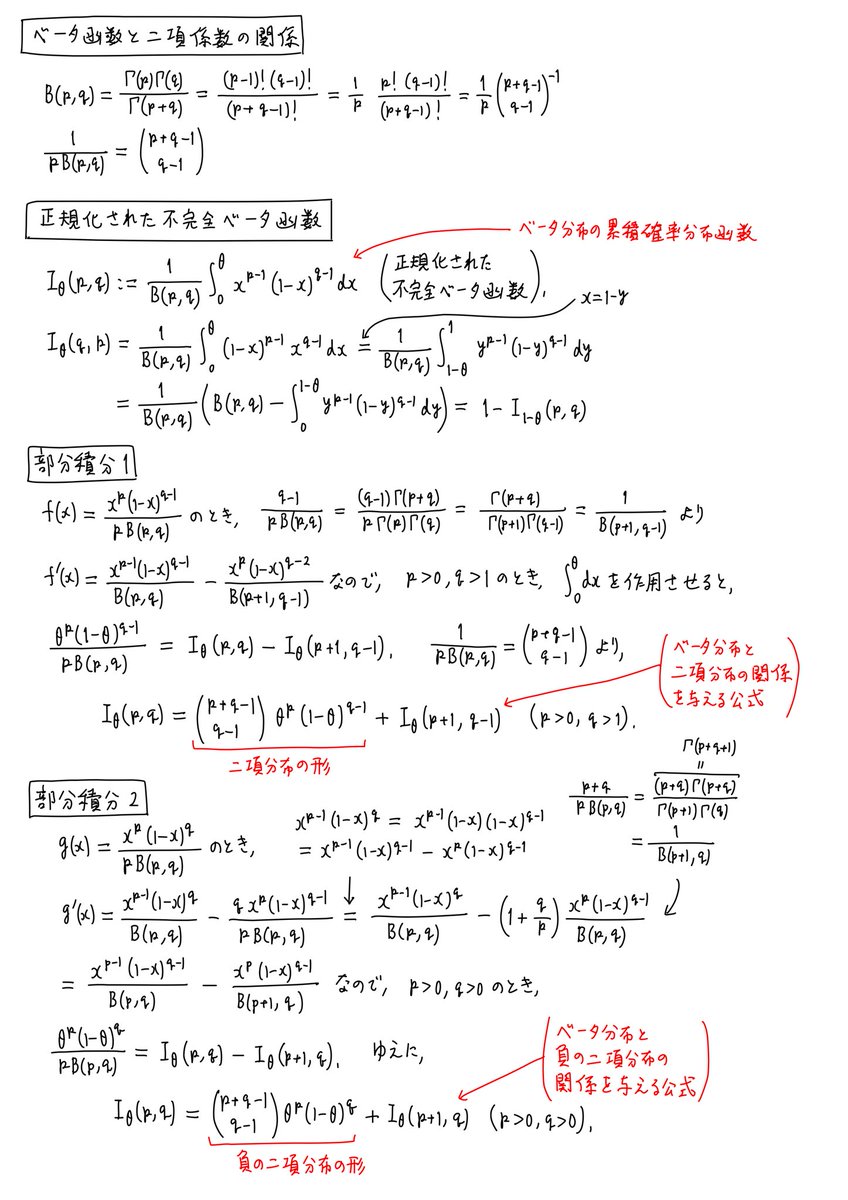 ベータ函数と二項係数の関係
B(p,q) = Γ(p)Γ(q)/Γ(p+q) = (p-1)!(q-1)!/(p+q-1)! = 1/p p!(q-1)!/(p+q-1)! = 1/p (p+q-1 q-1)^{-1}
1/(pB(p,q)) = (p+q-1 q-1)
正規化された不完全ベータ函数
ベータ分布の累積確率分布函数
I_θ(p,q) := 1/B(p,q) ∫_0^θ x^{p-1}(1-x)^{q-1}dx (正規化された不完全ベータ函数),
x=1-y
I_θ(q,p) = 1/B(p,q) ∫_0^θ (1-x)^{p-1} x^{q-1}dx = 1/B(p,q) ∫_{1-θ}^1 y^{p-1}(1-y)^{q-1}dy
= 1/B(p,q) (B(p,q) - ∫_0^{1-θ} y^{p-1}(1-y)^{q-1}dy) = 1 - I_{1-θ}(p,q)
部分積分1
f(x) = x^p(1-x)^{q-1}/(pB(p,q)) のとき, (q-1)/(pB(p,q)) = (q-1)Γ(p+q)/(pΓ(p)Γ(q)) = Γ(p+q)/(Γ(p+1)Γ(q-1)) = 1/B(p+1,q-1) より
f'(x) = x^{p-1}(1-x)^{q-1}/B(p,q) - x^p(1-x)^{q-2}/B(p+1,q-1) なので, p>0,q>1のとき, ∫_0^θ dx を作用させると,
θ^p(1-θ)^{q-1}/(pB(p,q)) = I_θ(p,q) - I_θ(p+1,q-1). 1/(pB(p,q)) = (p+q-1 q-1) より,
(ベータ分布と
二項分布の関係
を与える公式)
I_θ(p,q) = (p+q-1 q-1) θ^p(1-θ)^{q-1} + I_θ(p+1,q-1) (p>0, q>1).
二項分布の形
部分積分2
g(x) = x^p(1-x)^q/(pB(p,q)) のとき, x^{p-1}(1-x)^q = x^{p-1}(1-x)(1-x)^{q-1}
= x^{p-1}(1-x)^{q-1} - x^p(1-x)^{q-1}
Γ(p+q+1)
=
(p+q)/(pB(p,q)) = (p+q)Γ(p+q)/(Γ(p+1)Γ(q))
= 1/B(p+1,q)
g'(x) = x^{p-1}(1-x)^q/B(p,q) - q x^p(1-x)^{q-1}/(pB(p,q)) = x^{p-1}(1-x)^q/B(p,q) - (1+q/p) x^p(1-x)^{q-1}/B(p,q)
= x^{p-1}(1-x)^{q-1}/B(p,q) - x^p(1-x)^{q-1}/B(p+1,q) なので, p>0,q>0のとき,
θ^p(1-θ)^q/(pB(p,q)) = I_θ(p,q) - I_θ(p+1,q). ゆえに,
(ベータ分布と
負の二項分布の
関係を与える公式)
I_θ(p,q) = (p+q-1 q-1) θ^p(1-θ)^q + I_θ(p+1,q) (p>0,q>0).
負の二項分布の形